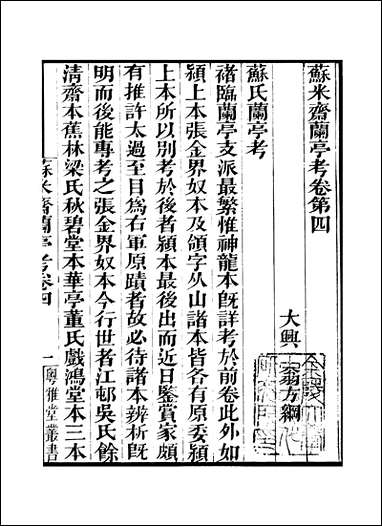 蘇米齋蘭亭考卷第四
大興 翁方綱
蘇氏蘭亭考
褚臨蘭亭支派最繁惟神龍本既詳考於前卷此外如
潁上本張金界奴本及領字从山諸本皆各有原委潁
上本所以別考於後者潁本最後出而近日鑒賞家頗
有推許太過至目為右軍原蹟者故必待諸本辨析既
明而後能專考之張金界奴本今行世者江邨吳氏餘
清齋本蕉林梁氏秋碧堂本華亭董氏戲鴻堂本三本
蘇米齋蘭亭考卷四
一
粵雅堂叢書